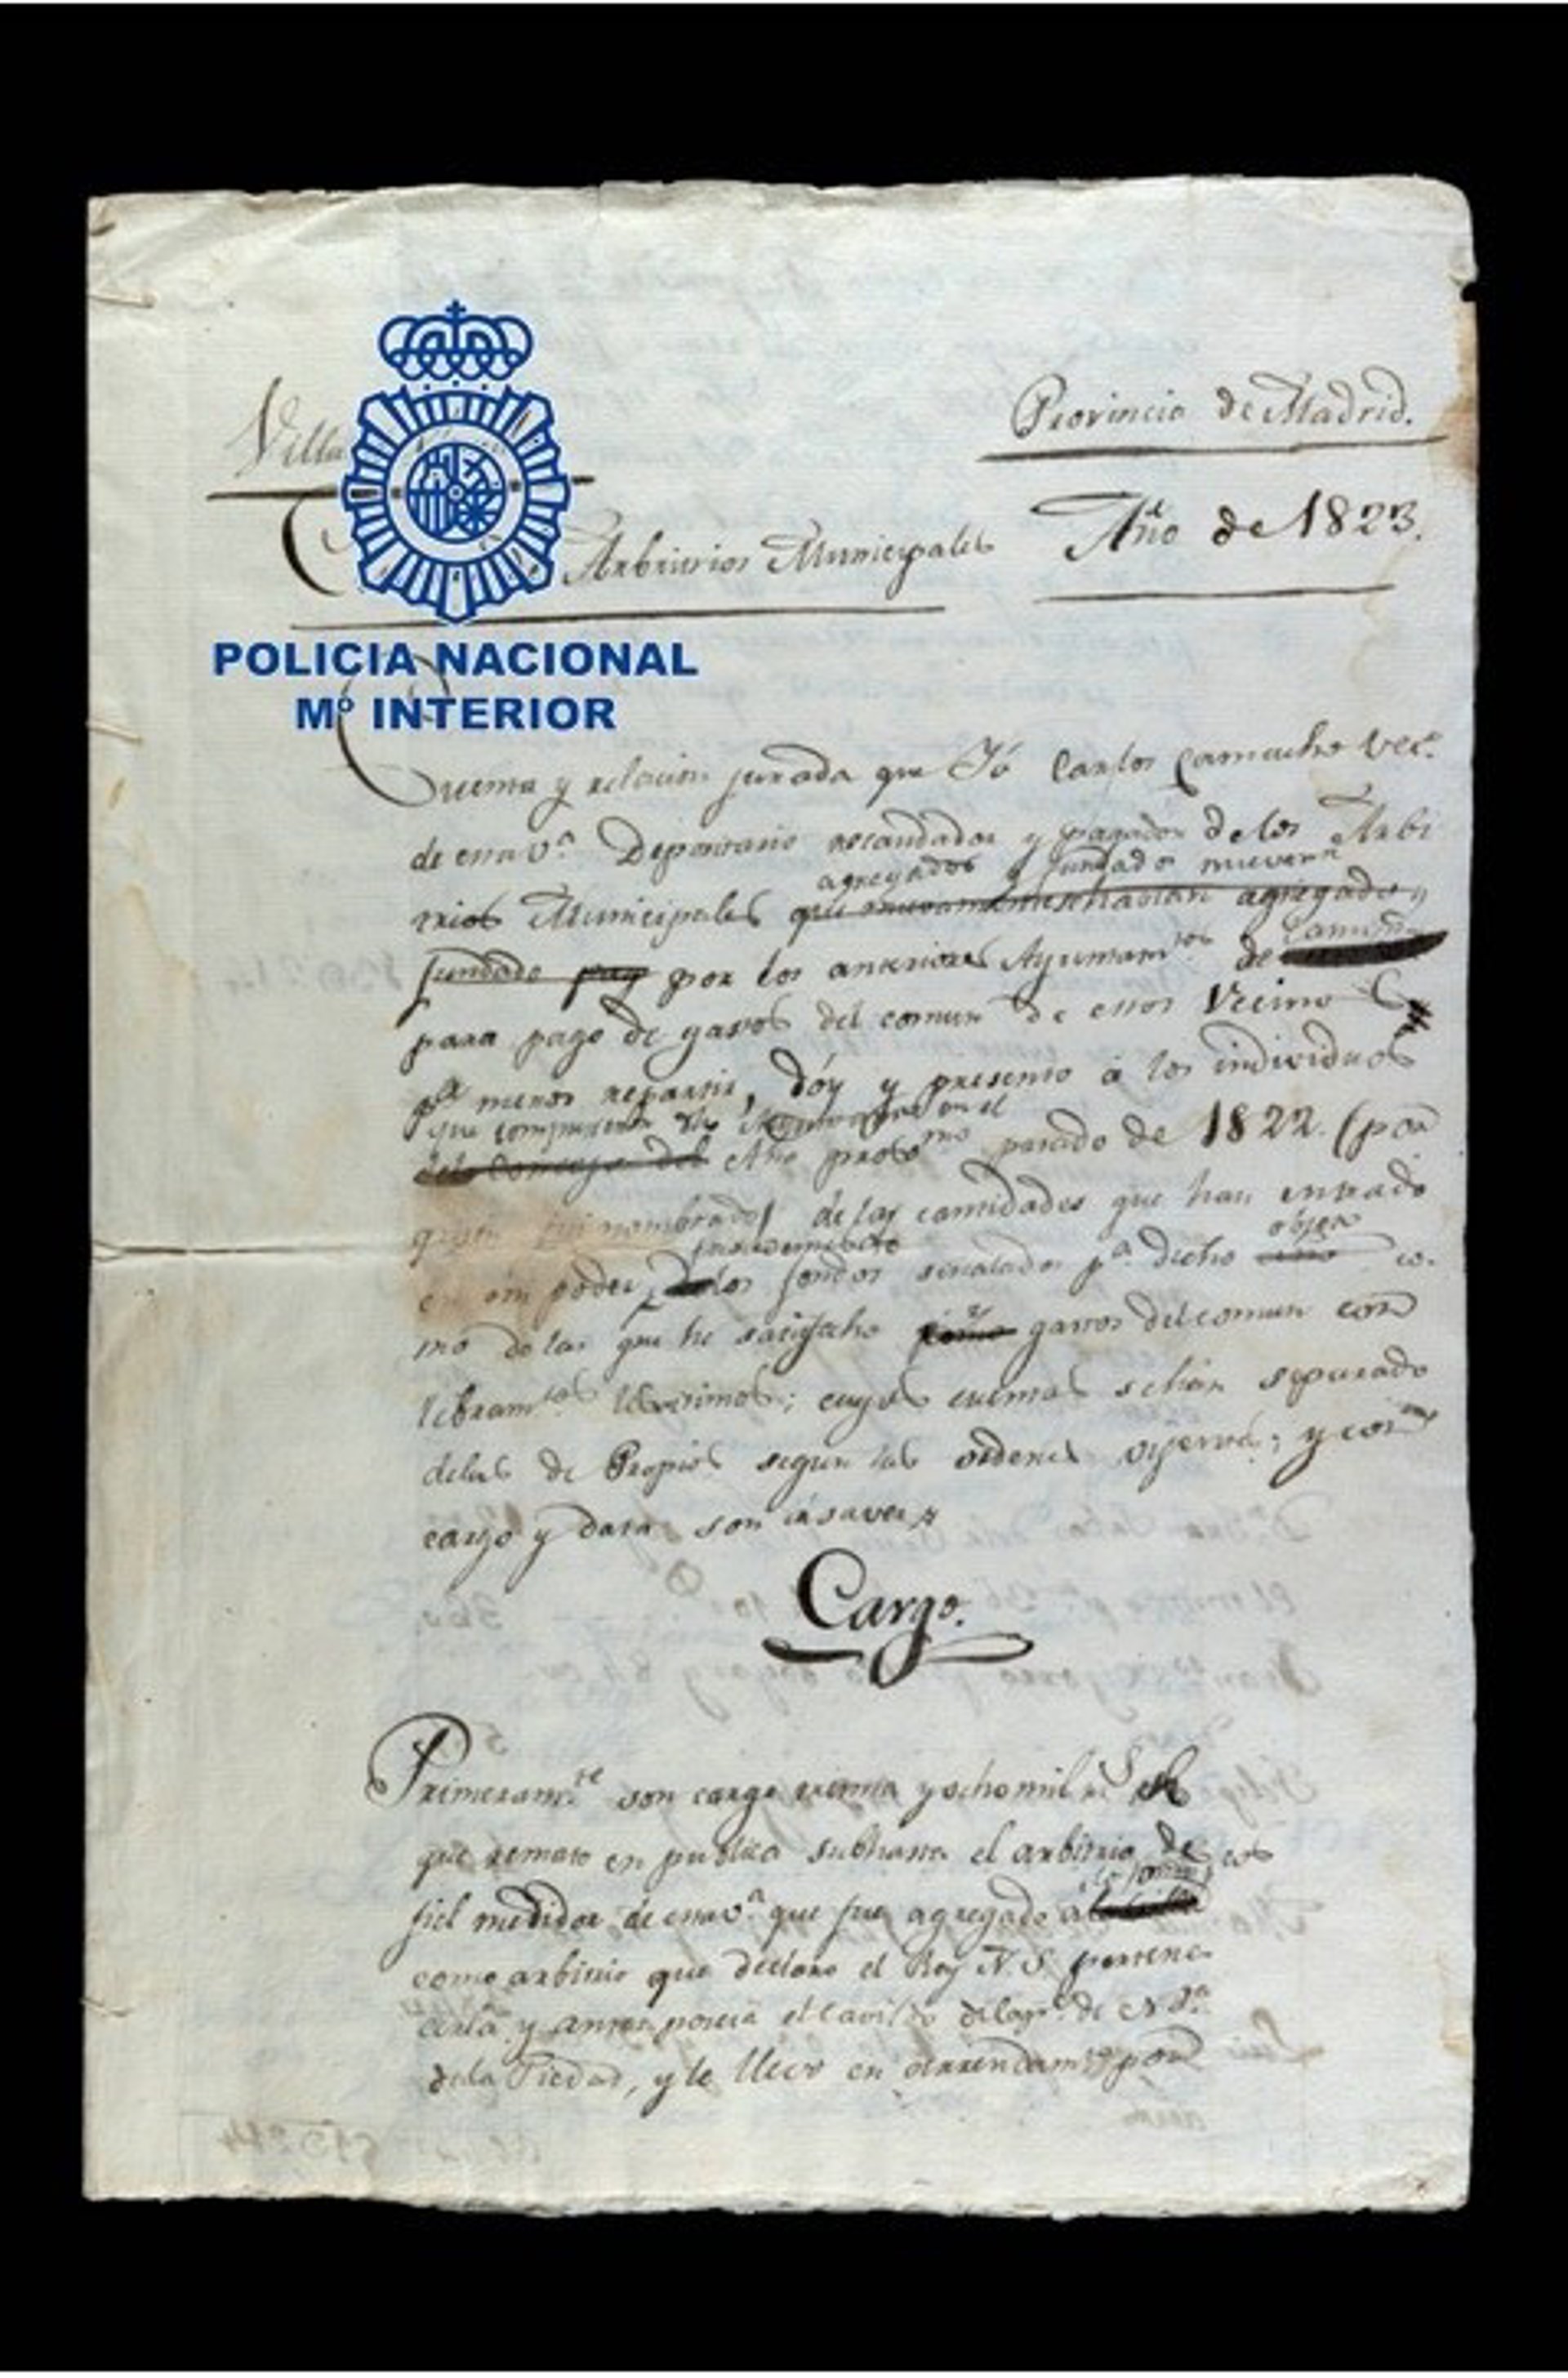 Villa
Provincia de Madrid.
Arbitrios Municipales
Año de 1823.
POLICIA NACIONAL
Mº INTERIOR
Cuenta y relacion jurada que Yó Carlos Camacho Vecº
de esta vª Depositario recaudador y pagador de los Arbi
agregados y fundado nuevamte
trios Municipales que nuevamente se habian agregado y
fundado por los anteriores Ayuntamtos de
para pago de gastos del comun de estos Vecinos
pª menos repartir, dóy y presento á los individuos
que compusieron el
del Concejo del Año proxmo pasado de 1822. (por
quien fui nombrado) de las cantidades que han entrado
objeto
en mi poder, los fondos señalados pª dicho co-
mo de las que he satisfecho gastos del comun con
libramtos lexitimos; cuyas cuentas se han separado
delas de Propios segun las ordenes vijentes; y con
cargo y data son ásaver
Cargo.
Primeramte son cargo treinta y ocho mil rs
que remato en publica subhasta el arbitrio de
fiel medidor de esta vª que fue agregado á
como arbitrio que declaro el Rey N. S. pertene-
cerla y antes poseia el Cavildo de de Nª Sª
dela Piedad, y le llevo en arrendamto por